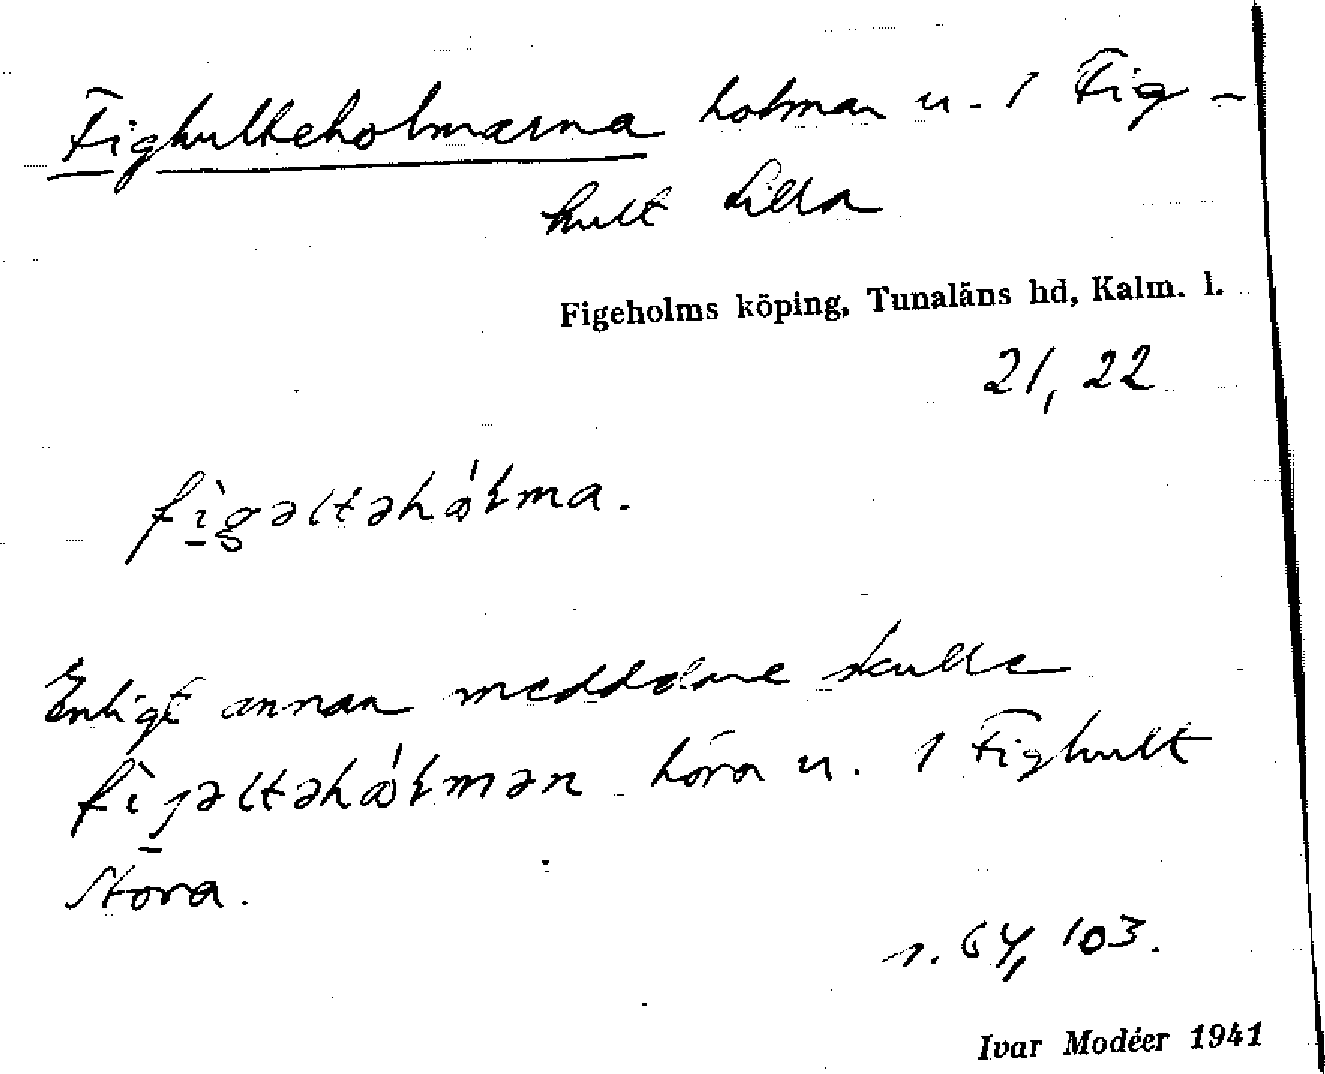 Fighulteholmarna holmar u. 1 Fig-
hult Lilla
Figeholms köping, Tunaläns hd, Kalm. l.
21, 22
Enligt annan meddelare skulle
höra u. 1 Fighult
Stora.
s. 64, 103.
Ivar Modéer 1941